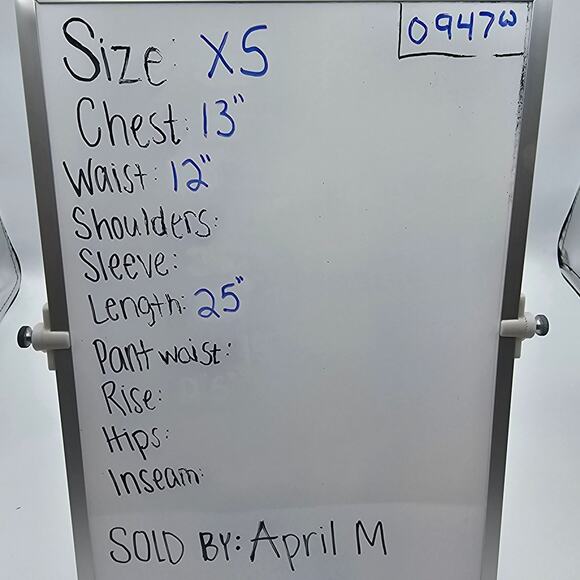 0947W
Size: XS
Chest: 13"
Waist: 12"
Shoulders:
Sleeve:
Length: 25"
Pant waist:
Rise:
Hips:
Inseam:
SOLD BY: April M